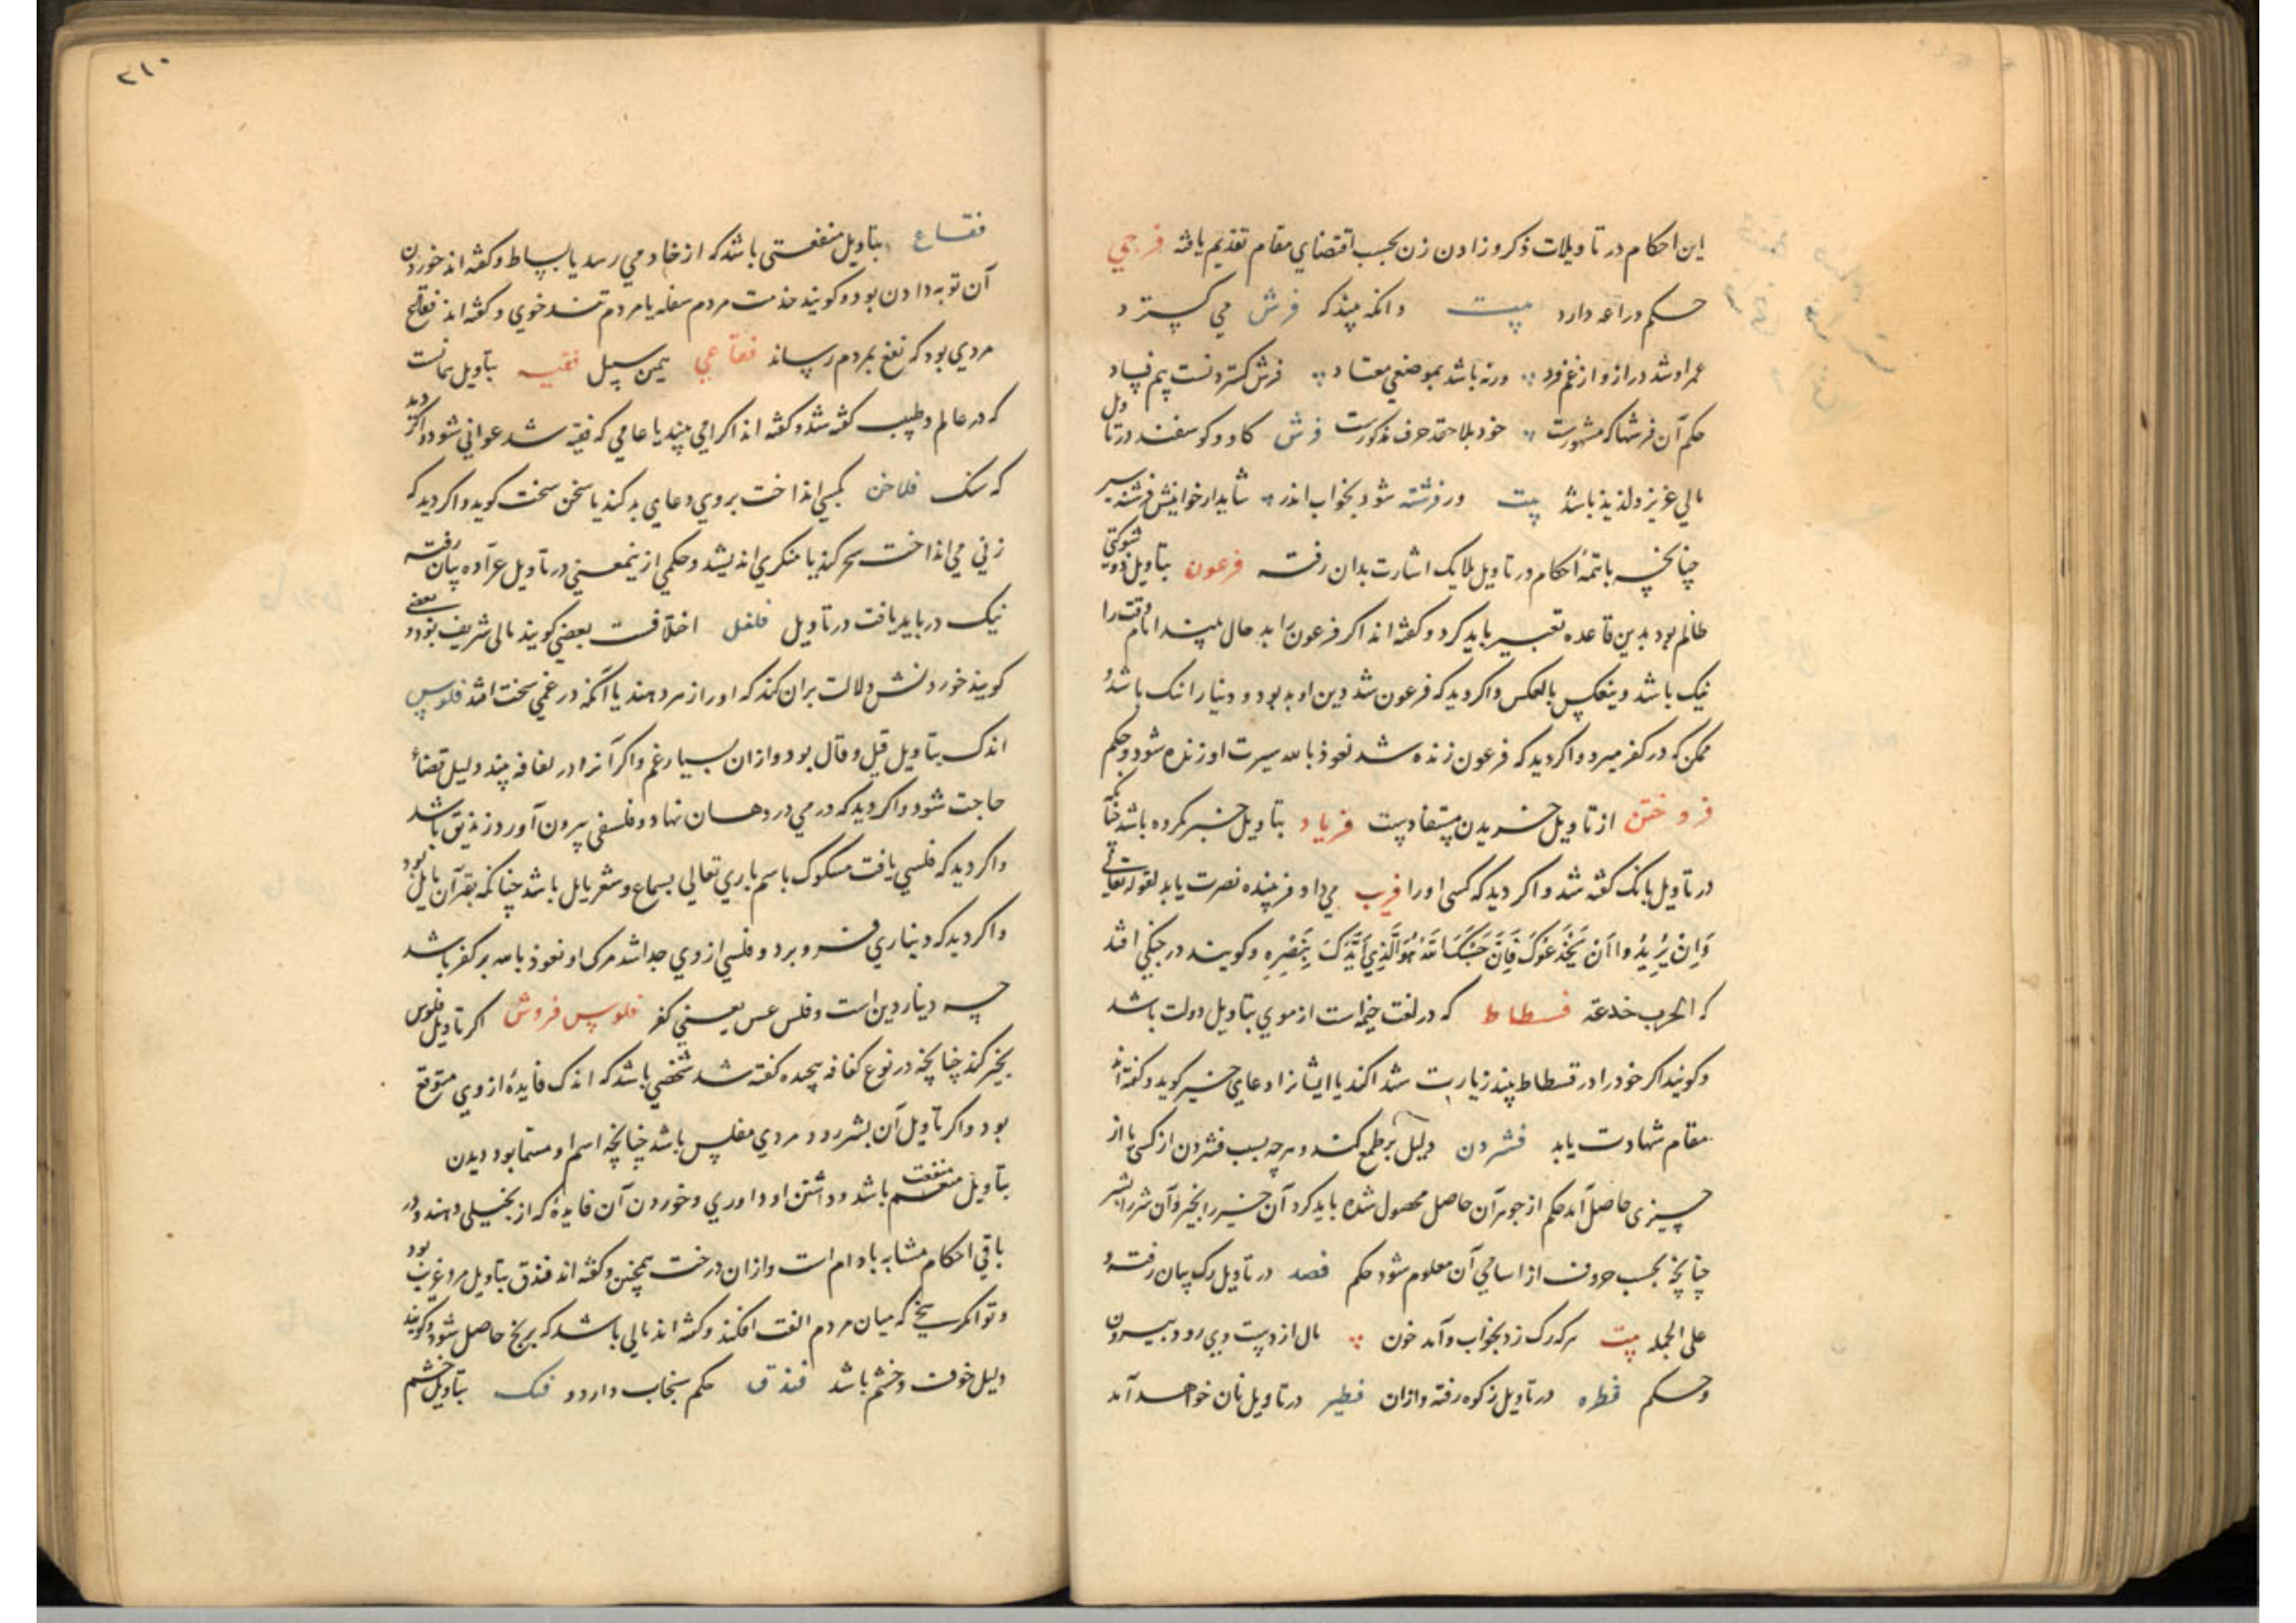 این احکام در تاویلات ذکر و زادن زن بحسب اقتضای مقام تقدیم یافته فرجی
حکم دراعه دارد بیت وانکه بیند که فرش می کسترد
عمر او شد دراز و از غم فرد ورنه باشد بموضعی معتاد فرش کستردنست بیم فساد
حکم آن فرشها که مشهورست خود بلاحقه حرف مذکورست فرش کاو و کوسفند در تاویل
مالی عزیز و لذیذ باشد بیت ور فرشته شود بخواب اندر شاید ار خوانیش فرشته سیر
چنانچه باتمه احکام در تاویل ملایک اشارت بدان رفته فرعون بتاویل ذوی شوکتی
ظالم بود بدین قاعده تعبیر باید کرد و کفته اند اکر فرعون را بد حال بیند امام وقت را
نیک باشد وینعکس بالعکس واکر دید که فرعون شد دین او بد بود و دنیا را نیک باشد و
ممکن که در کفر میرد واکر دید که فرعون زنده شد نعوذ بالله سیرت او زنده شود و حکم
فروختن از تاویل خریدن مستفادست فریاد بتاویل خبر مکروه باشد چنانکه
در تاویل بانک کفته شد واکر دید که کسی او را فریب می داد فریبنده نصرت یابد لقوله تعالی
وَاِنْ یُرِیْدُوا اَنْ یَخْدَعُوکَ فَاِنَّ حَسْبَکَ اللّٰهُ هُوَالَّذِی اَیَّدَکَ بِنَصْرِهِ وکویند در جنکی افتد
که الحرب خدعة فسطاط که در لغت خیمه است از موی بتاویل دولت باشد
وکویند اکر خود را در فسطاط بیند زیارت شهدا کند یا ایشانرا دعای خیر کوید و کفته اند
مقام شهادت یابد فشردن دلیل بر طمع کند و هرچه بسبب فشردن از کسی یا از
چیزی حاصل آمد حکم از جوهر آن حاصل محصول شده باید کرد آن خیر را بخیر وآن شر را بشر
چنانچه بحسب حروف از اسامی آن معلوم شود حکم فصد در تاویل رک بیان رفته و
علی الجمله بیت هرکه رک زد بخواب وآمد خون مال از دست وی رود بیرون
وحکم فطره در تاویل زکوه رفته وازان فطیر در تاویل نان خواهد آمد
۲۱۰
فقاع بتاویل منفعتی باشد که از خادمی رسد یا بساط وکفته اند خوردن
آن توبه دادن بود وکویند خدمت مردم سفله یا مردم تند خوی وکفته اند فقاع
مردی بود که نفع بمردم رساند فقاعی همین سبیل فقیه بتاویل همانست
که در عالم وطبیب کفته شد وکفته اند اکر امی بیند یا عامی که فقیه شد عوانی شود واکر دید
که سنک فلاخن بکسی انداخت بروی دعای بد کند یا سخن سخت کوید واکر دید که
زنی می انداخت سحر کند یا منکری اندیشد وحکمی ازینمعنی در تاویل عراده بیان رفته
نیک در باید یافت در تاویل فلفل اختلافست بعضی کویند مالی شریف بود و بعضی
کویند خوردنش دلالت بران کند که او را زهر دهند یا آنکه در غمی سخت افتد فلوس
اندک بتاویل قیل وقال بود وازان بسیار غم واکر آنرا در لفافه بیند دلیل قضاء
حاجت شود واکر دید که درمی در دهان نهاد وفلسی بیرون آورد زندیق باشد
واکر دید که فلسی یافت مسکوک باسم باری تعالی بسماع وشعر مایل باشد چنانکه بقرآن مایل بود
واکر دید که دیناری فرو برد و فلسی از وی جدا شد مرک او نعوذ بالله بر کفر باشد
چه دینار دین است وفلس عس یعنی کفر فلوس فروش اکر تاویل فلوس
بخیر کند چنانچه در نوع کفافه پیچیده کفته شد شخصی باشد که اندک فایدهٔ از وی متوقع
بود واکر تاویل آن بشر رود مردی مفلس باشد چنانچه اسم او مستمابود دیدن
بتاویل منفعت باشد وداشتن او داوری وخوردن آن فایدهٔ که از بخیلی دهند ودر
باقی احکام مشابه بادام است وازان درخت همچنین وکفته اند فندق بتاویل مرد غریب بود
وتوانکر سخی که میان مردم الفت افکند وکفته اند مالی باشد که برنج حاصل شود وکویند
دلیل خوف وخشم باشد فندق حکم سنجاب دارد و فنک بتاویل خشم